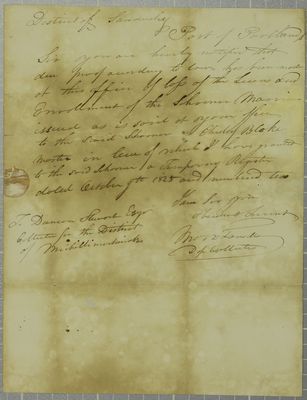 District of Sandusky
Port of Portland
Sir you are hereby notified that
due proof according to law has been made
at this office of loss of the License and
Enrollment of the Schooner
issued as is said at your office
to the said Schooner Blake
master in lieu of which I have granted
to the said Schooner a Temporary Register
dated October 9th 1825 and numbered ten
I am Sir your
obedient Servant
Dep Collector
To Duncan Stewart Esqr
Collector for the District
of Michilimackinac